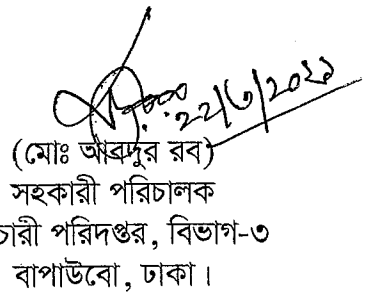 ২২/৩/২০২১
(মোঃ আবদুর রব)
সহকারী পরিচালক
চারী পরিদপ্তর, বিভাগ-৩
বাপাউবো, ঢাকা।